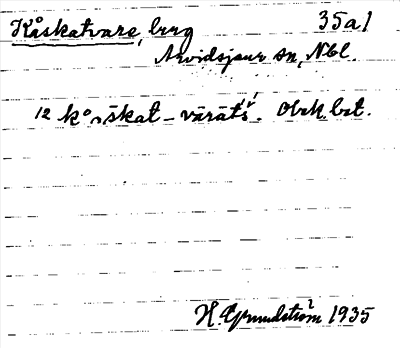 Kåskatvare, brrg 35a1
Arvidsjaur sn, Nbl.
12 koškat-vārāt́š. Obek. bet.
H. Grundström 1935